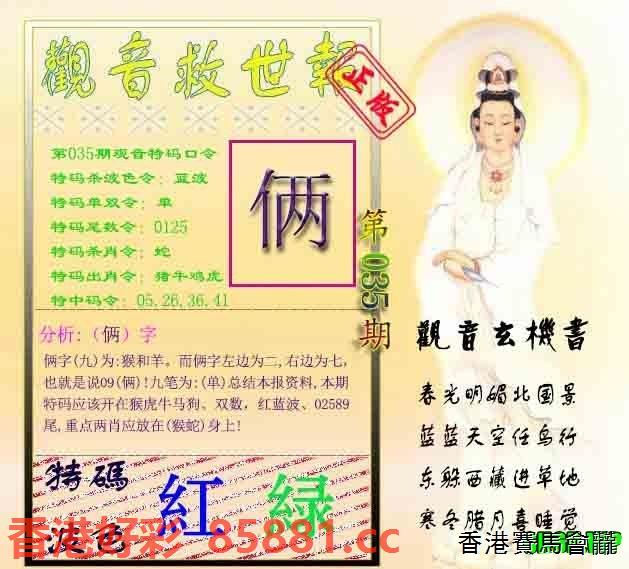 觀音救世報
正版
第035期观音特码口令
特码杀波色令：蓝波
特码单双令：单
特码尾数令：0125
特码杀肖令：蛇
特码出肖令：猪牛鸡虎
特中码令：05.26.36.41
俩
第035期
分析:（俩）字
俩字(九)为:猴和羊。而俩字左边为二,右边为七,
也就是说09(俩)!九笔为:(单)总结本报资料,本期
特码应该开在猴虎牛马狗、双数，红蓝波、02589
尾,重点两肖应放在(猴蛇)身上!
觀音玄機書
春光明媚北国景
蓝蓝天空任鸟行
东躲西藏进草地
寒冬腊月喜睡觉
特碼
波色
紅 綠
香港好彩 85881.cc
香港賽馬會